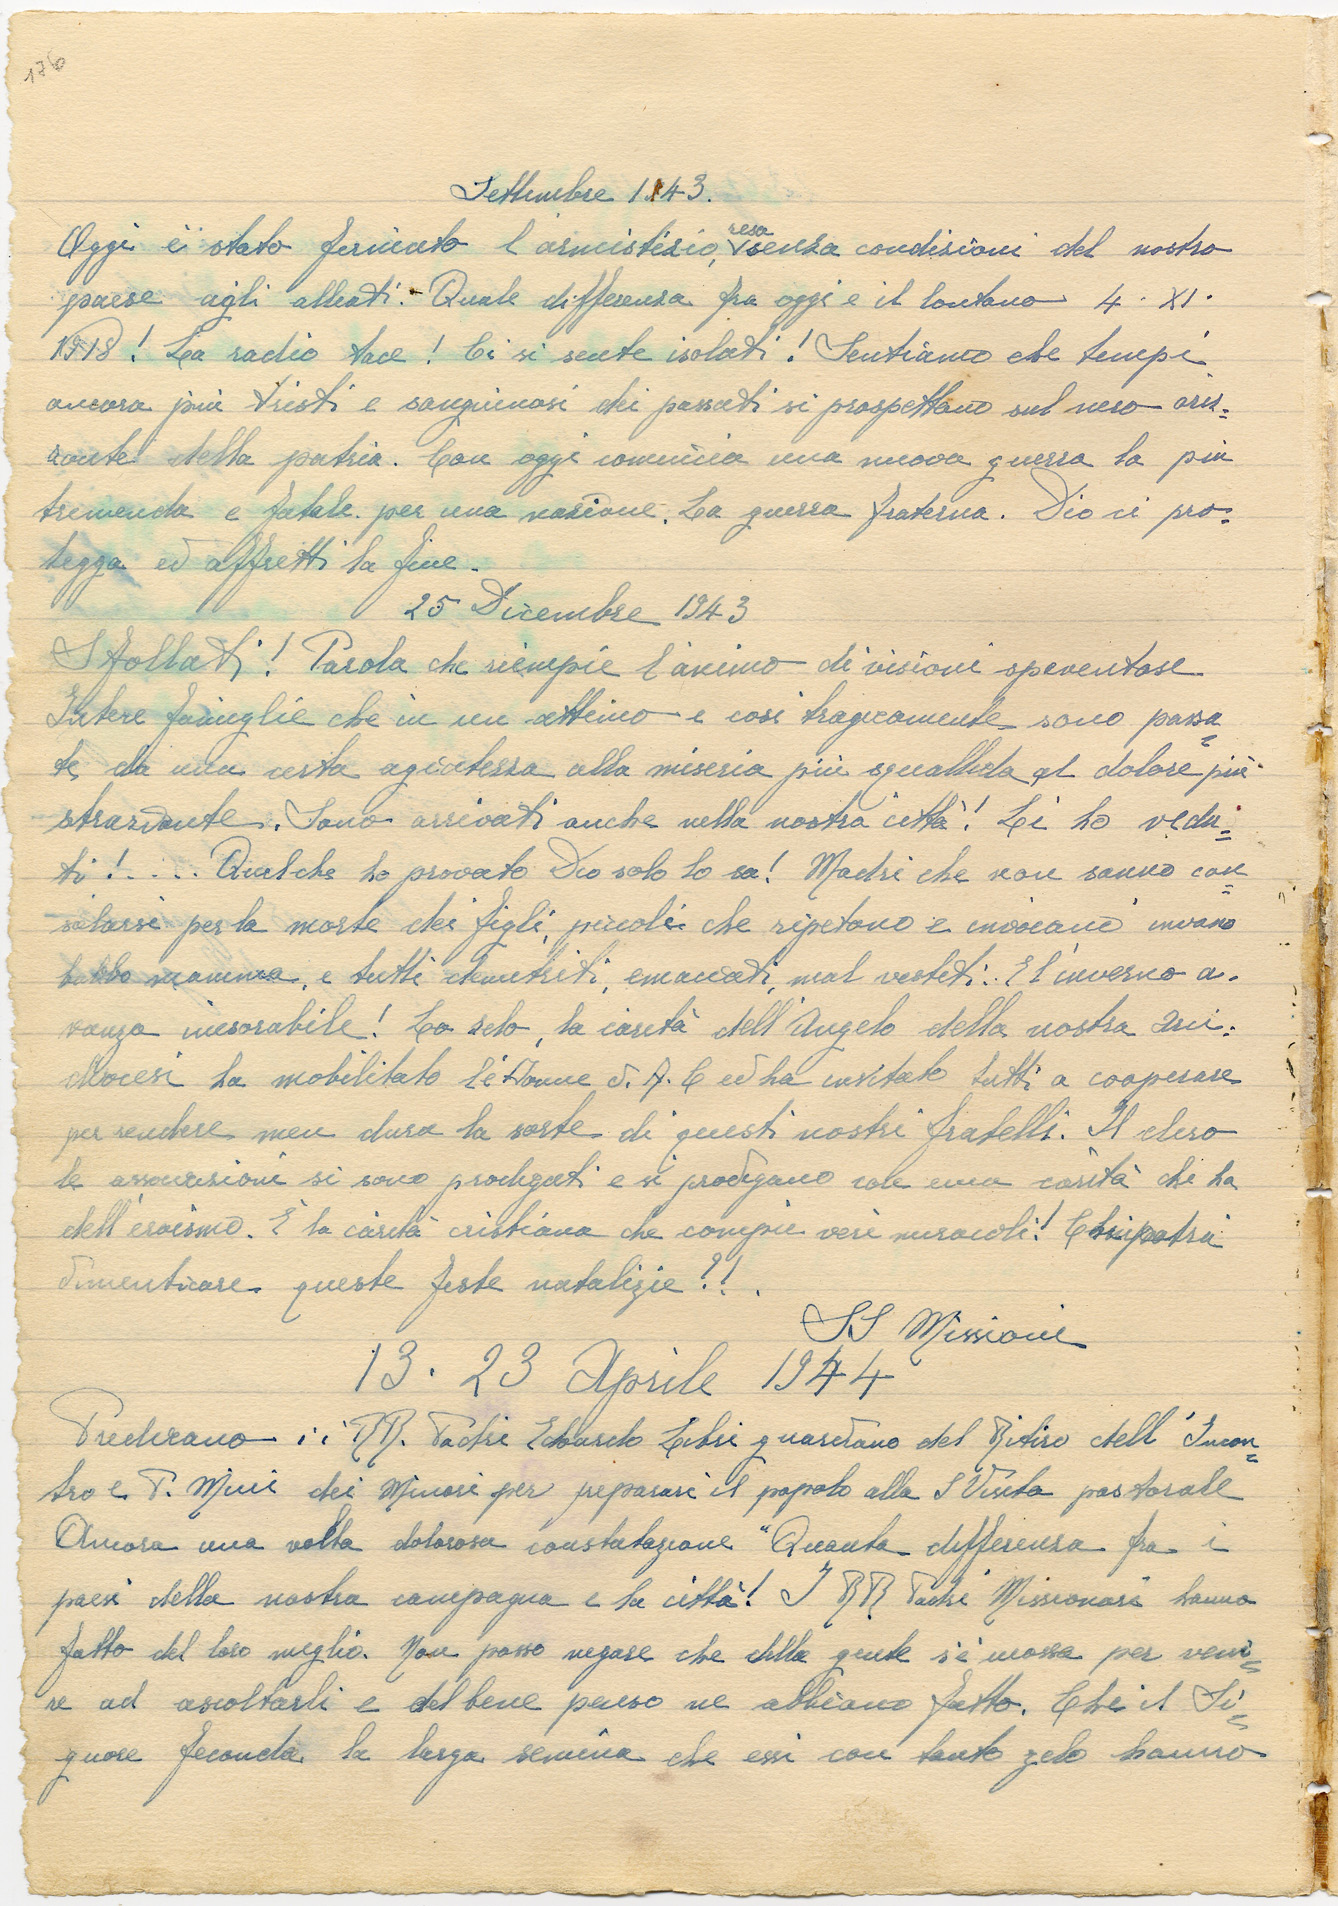 176
Settembre 1943.
Oggi è stato firmato l'armistizio, resa senza condizioni del nostro
paese agli alleati. Quale differenza fra oggi e il lontano 4. XI.
1918! La radio tace! Ci si sente isolati! Sentiamo che tempi
ancora più tristi e sanguinosi dei passati si prospettano sul nero oriz=
zonte della patria. Con oggi comincia una nuova guerra la più
tremenda e fatale per una nazione. La guerra fraterna. Dio ci pro=
tegga ed affretti la fine.
25 Dicembre 1943
Sfollati! Parola che riempie l'animo di visioni spaventose
Intere famiglie che in un attimo e così tragicamente sono passa=
te, da una certa agiatezza alla miseria più squallida al dolore più
straziante. Sono arrivati anche nella nostra città! Li ho vedu=
ti!.... Quel che ho provato Dio solo lo sa! Madri che non sanno con=
solarsi per la morte dei figli, piccoli che ripetono e invocano invano
babbo mamma, e tutti denutriti, emaciati, mal vestiti.. E l'inverno a=
vanza inesorabile! Lo zelo, la carità dell'Angelo della nostra Arci=
diocesi ha mobilitato le Donne d. A. C ed ha invitato tutti a cooperare
per rendere men dura la sorte di questi nostri fratelli. Il clero
le associazioni si sono prodigati e si prodigano con una carità che ha
dell'eroismo. È la carità cristiana che compie veri miracoli! Chi potrà
dimenticare queste feste natalizie?!.
SS Missioni
13. 23 Aprile 1944
Predicano i RR. Padri Edoardo guardiano del Ritiro dell'Incon=
tro e P. Mini dei Minori per preparare il popolo alla S Visita pastorale
Ancora una volta dolorosa constatazione "Quanta differenza fra i
paesi della nostra campagna e la città! I RR Padri Missionari hanno
fatto del loro meglio. Non posso negare che della gente s'è mossa per veni=
re ad ascoltarli e del bene penso ne abbiano fatto. Che il Si=
gnore feconda la larga semina che essi con tanto zelo hanno